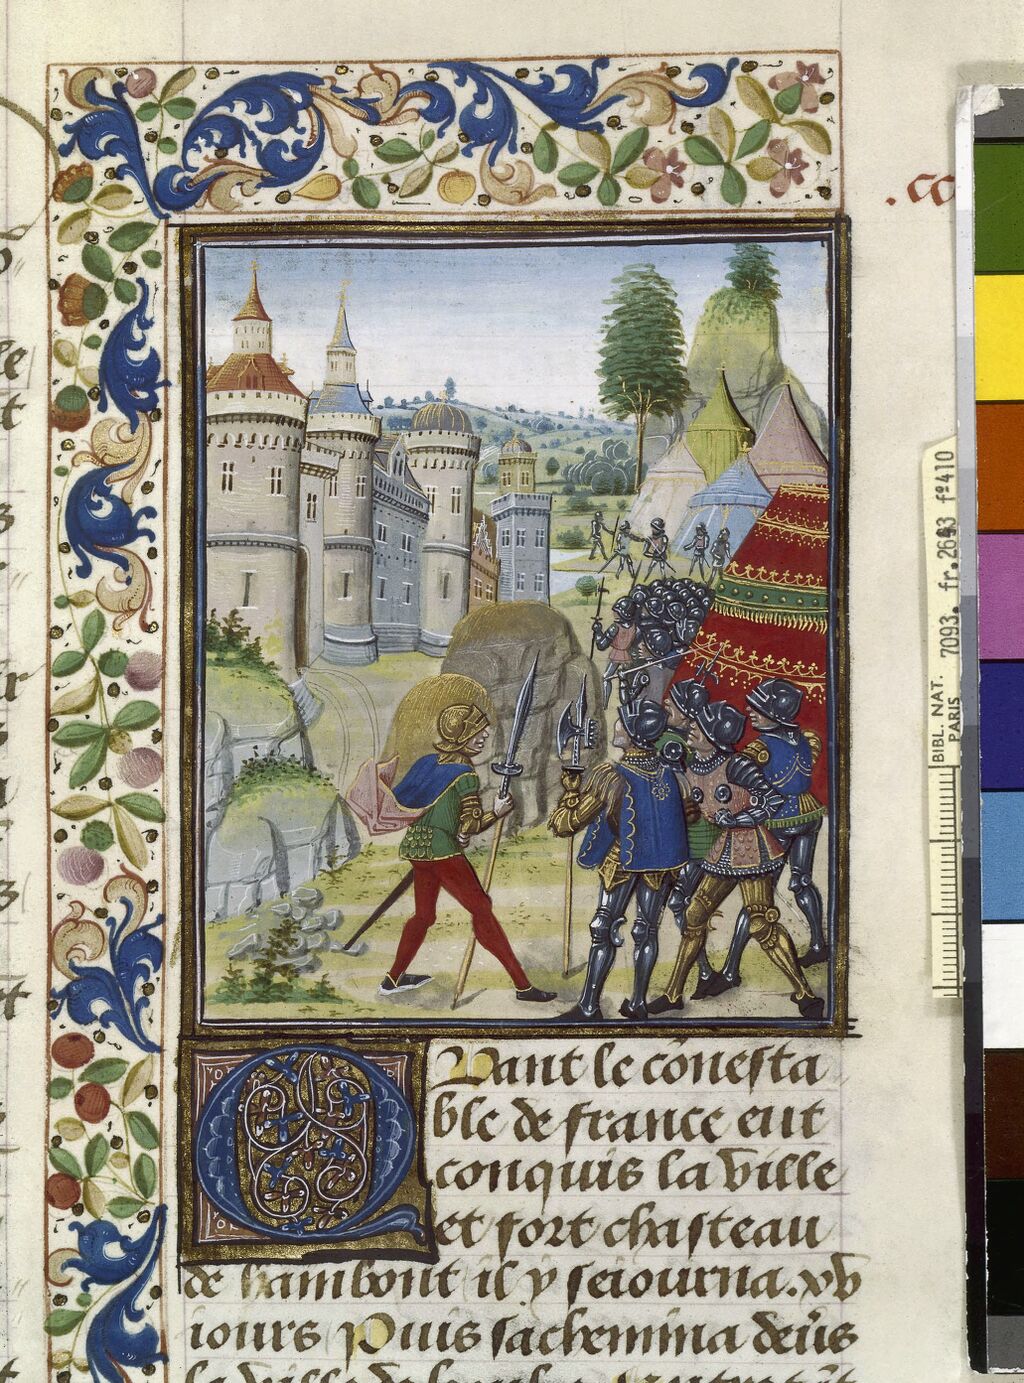 .cc
Quant le cōnesta
ble de france eut
conquis la ville
et fort chasteau
de hambont il y seiourna .xv
iours Puis sachemina deūs
la ville de
BIBL. NAT. 7093. fr. 2643 fº410
PARIS